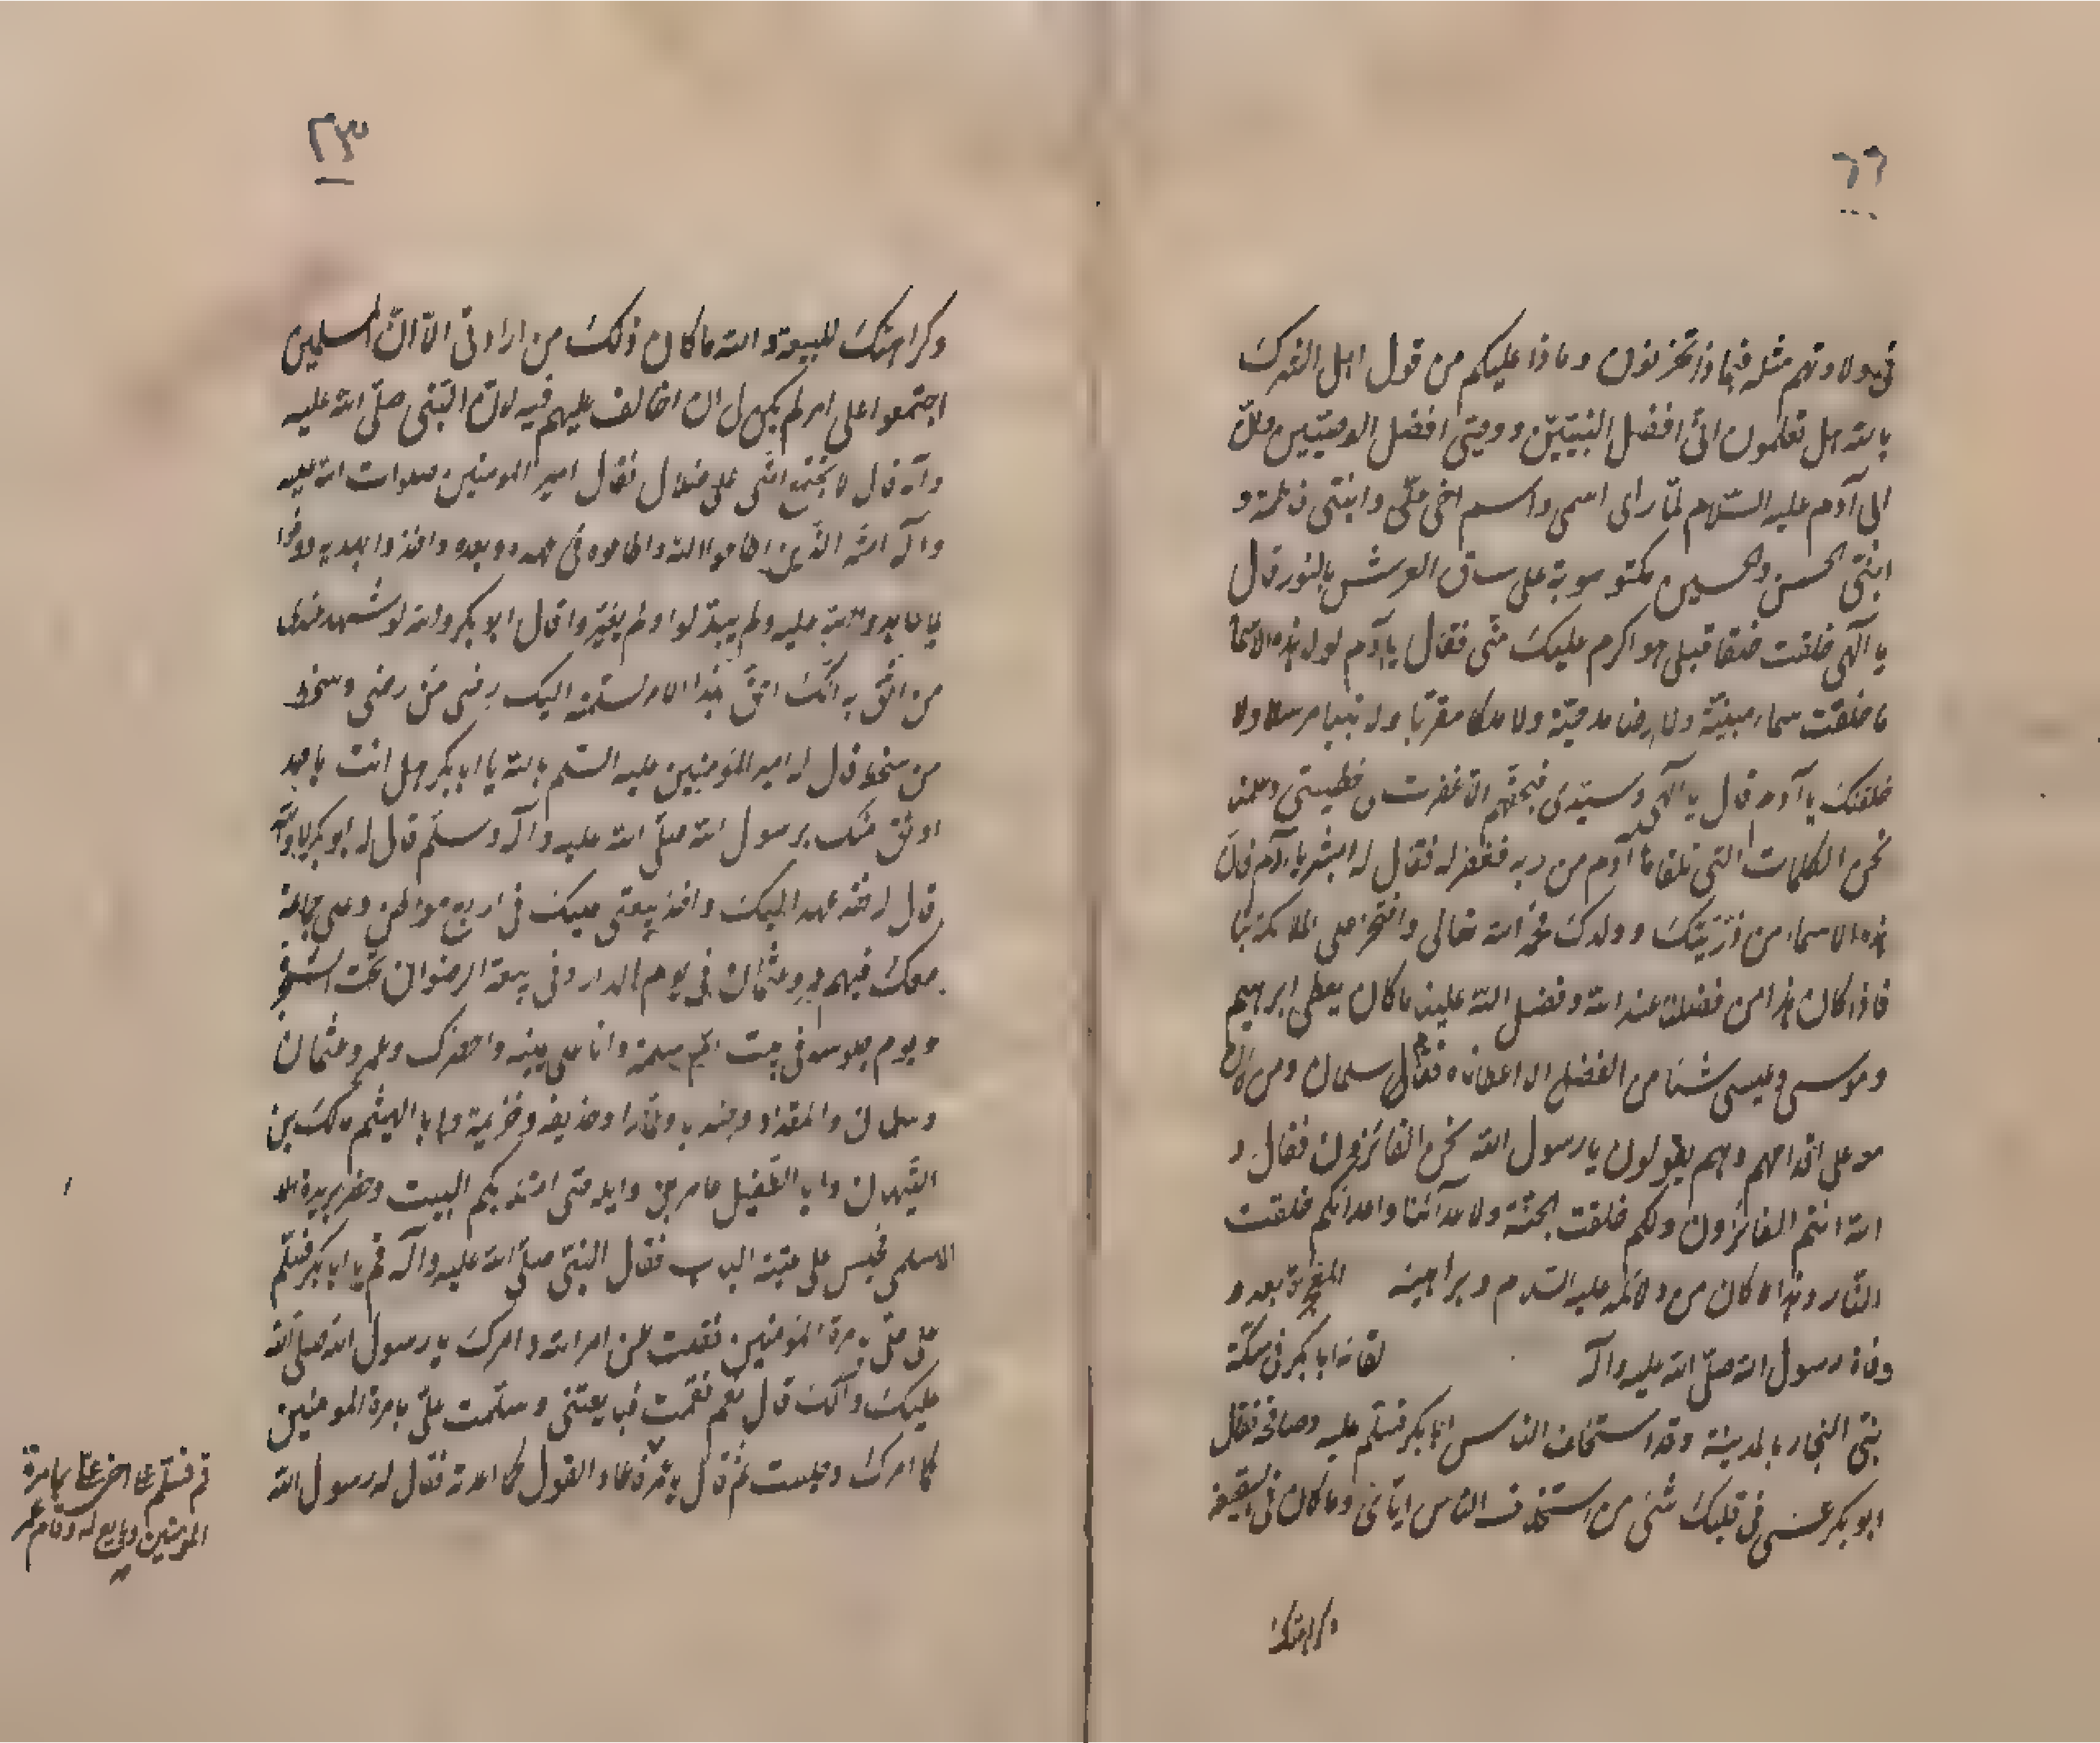 ٦٦
فى ولادتهم مثله فيما ذا تحزنون وماذا عليكم من قول اهل الشرك
بالله هل تعلمون انى افضل النبيين ووصيى افضل الوصيين وانّ
ابى آدم عليه السّلام لمّا راى اسمى واسم اخى علىّ وابنتى فاطمة و
ابنىّ الحسن والحسين مكتوبة على ساق العرش بالنور قال
يا آلهى خلقت خلقا قبلى هو اكرم عليك منّى فقال يا آدم لولا هذه الاسما
ما خلقت سماء مبنيّة ولا ارضا مدحيّة ولا ملكا مقربا ولا نبيا مرسلا ولا
خلقتك يا آدم قال يا آلهى وسيّدى فبحقّهم الّا غفرت لى خطيئتى
نحن الكلمات التى تلقاها آدم من ربه فغفر له فقال له ابشر يا آدم فانّ
هذه الاسماء من ذرّيتك وولدك الله تعالى وافتخر على الملائكة بنا
فاذا كان هذا من فضلنا عند الله وفضل الله علينا ما كان يعطى ابرهيم
وموسى وعيسى شئا من الفضل الا اعطاناه فقال سلمان ومن
معه على اقدامهم وهم يقولون يا رسول الله نحن الفائزون فقال و
الله انتم الفائزون ولكم خلقت الجنّة ولاعدآئنا واعدائكم خلقت
النّار وهذا ما كان من دلائله عليه السّلام وبراهينه بعد و
وفاة رسول الله صلّى الله عليه وآله لقائه ابا بكر فى سكّة
بنى النجار بالمدينة وقد استخلف الناس ابا بكر فسلّم عليه وصافحه فقال
ابو بكر عسى فى قلبك شئ من استخلاف الناس ايّانى وما كان فى السقيفة
وكراهتك
٢٣
وكراهتك للبيعة والله ما كان ذلك من ارادتى الّا انّ المسلمين
اجتمعوا على امر لم يكن لى ان اخالف عليهم فيه لانّ النّبى صلّى الله عليه
وآله قال لا تجتمع امّتى على ضلال فقال امير المومنين صلوات الله عليه
وآله امّته الذين اطاعوا الله واطاعوه فى عهده وبعده واخذوا بهديه
بما عاهدوا الله عليه ولم يبدّلوا ولم يغيّروا قال ابو بكر والله لو شهد عندى
من اثق به انّك احقّ بهذا الامر لسلمته اليك رضى من رضى وسخط
من سخط قال له امير المؤمنين عليه السّلم بالله يا ابا بكر هل انت باحد
اوثق منك برسول الله صلّى الله عليه وآله وسلّم قال له ابو بكر لا والله
قال له اخذ بيعتى عليك فى اربع مواطن وعلى جماعة
معك فيهم وعثمان فى يوم الدار وفى بيعة الرضوان تحت الشجرة
ويوم جلوسه فى بيت امّ سلمة وانا على يمينه واحضرك وعمر وعثمان
وسلمان والمقداد وجندب وعمّارا وحذيفه وخزيمة وابا الهيثم مالك بن
التّيهان وابا الطّفيل عامر بن واثلة حتى امتلا بكم البيت وحضر بريدة
الاسلمى فجلس على عتبة الباب فقال النبّى صلّى الله عليه وآله قم يا ابا بكر فسلّم
على علىّ بامرة المؤمنين فقلت عن امر الله وامرك يا رسول الله صلّى الله
عليك وآلك قال نعم فقمت فبايعتنى وسلّمت علىّ بامرة المومنين
كما امرك وجلست ثم قال قم فعاد القول كما اعدته فقال له رسول الله
قم فسلّم على اخى علىّ بامرة
المومنين وبايع له وقام عمر